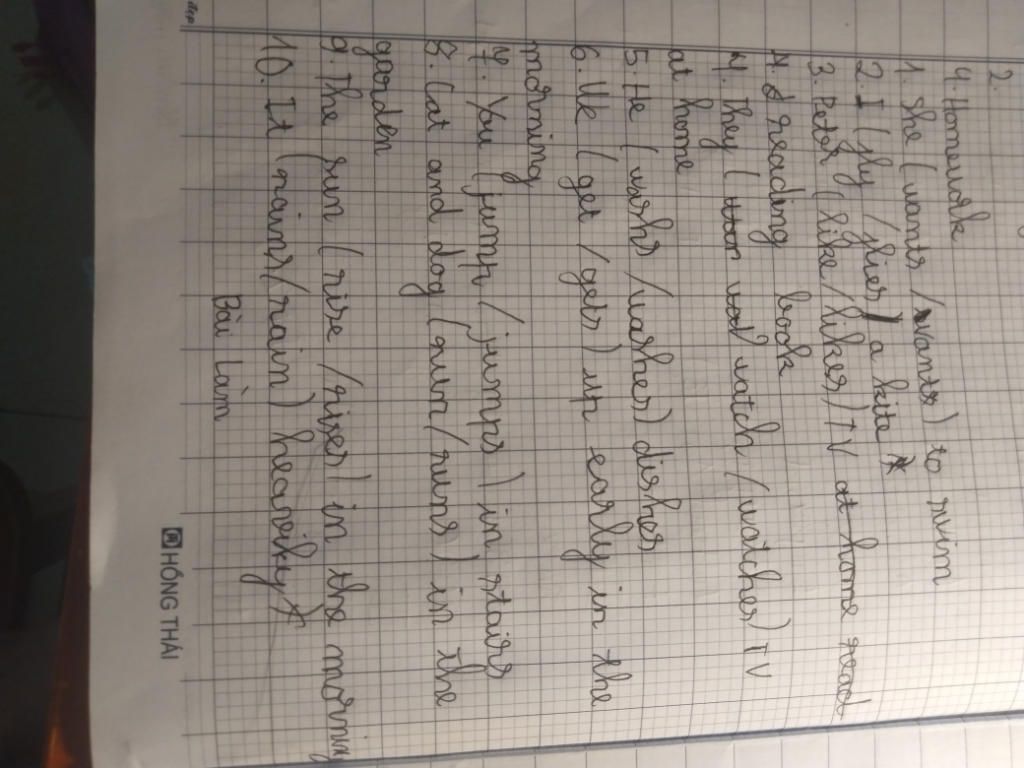 2.
4. Homework
1. She (wants / wants) to swim
2. I (fly / flies) a kite
3. Peter (like / likes) TV at home read
4. I reading book
4. They ( watch / watches) TV
at home
5. He (wshs / washes) dishes
6. We (get / gets) up early in the
morning
7. You (jump / jumps) in stairs
8. Cat and dog (run / runs) in the
garden
9. The sun (rise / rises) in the morning
10. It (rains / rain)
Bài Làm
HỒNG THÁI
đẹp